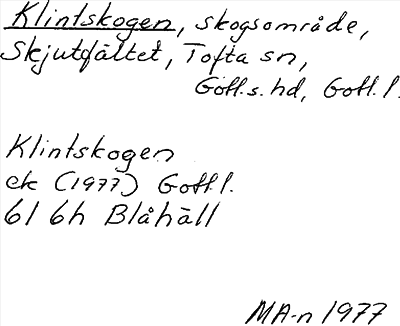 Klintskogen, skogsområde,
Skjutfältet, Tofta sn,
Gotl.s. hd, Gotl. l.
Klintskogen
ek (1977) Gotl. l.
6I 6h Blåhäll
MA-n 1977